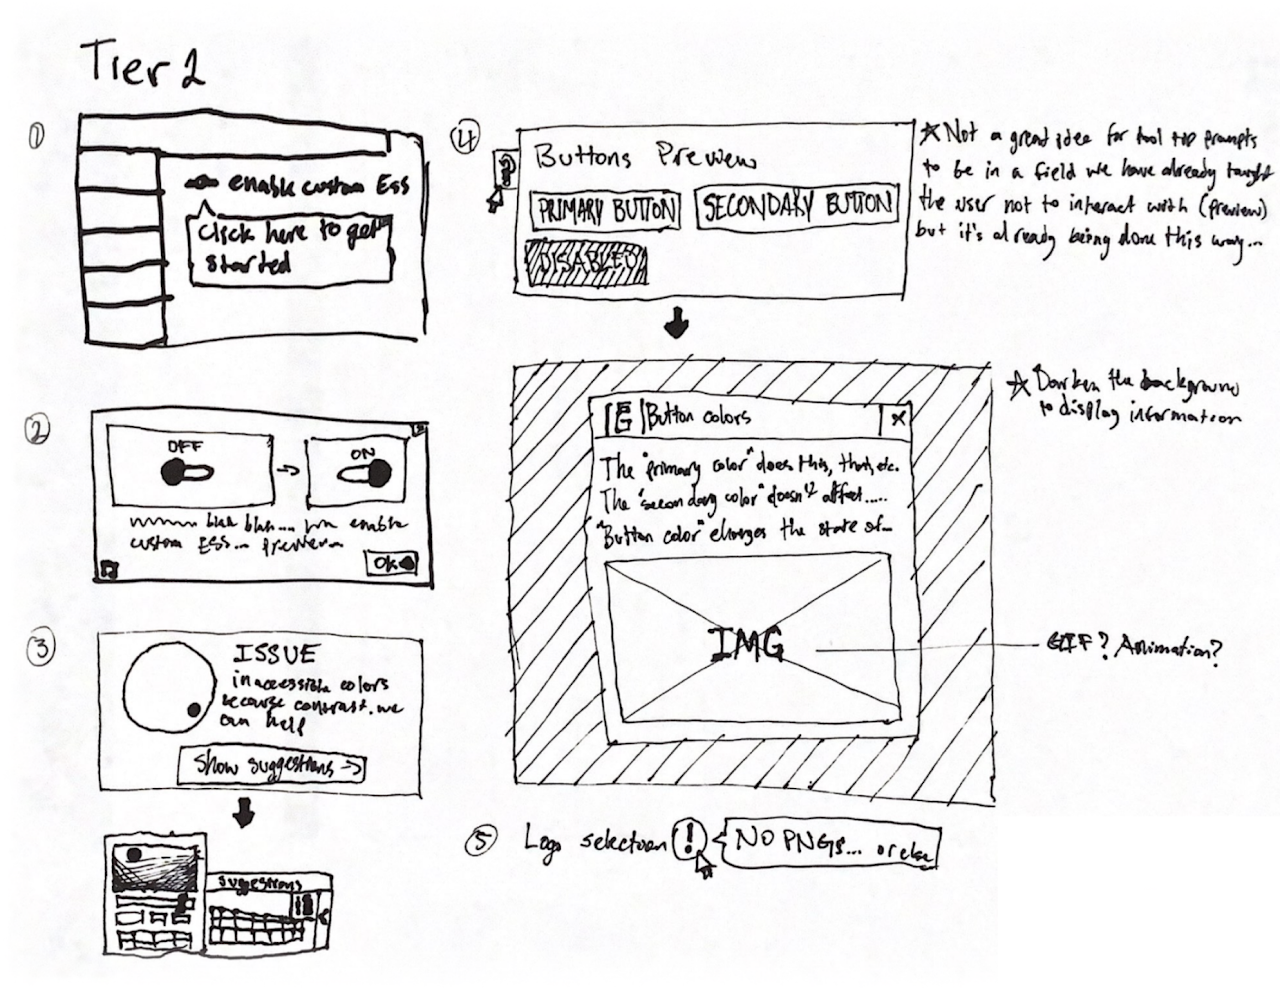 Tier 2
①
enable custom Ess
Click here to get
started
②
OFF
ON
blah blah.... enable
custom ESS... preview
OK
③
ISSUE
inaccessible colors
because contrast. we
can help
Show suggestions →
suggestions
④
?
Buttons Preview
PRIMARY BUTTON
SECONDARY BUTTON
DISABLED
☆ Not a great idea for tool tip prompts
to be in a field we have already taught
the user not to interact with (preview)
but it's already being done this way...
E Button colors X
The "primary color" does this, that, etc.
The "secondary color" doesn't affect.....
"Button color" changes the state of...
IMG
☆ Darken the background
to display information
GIF? Animation?
⑤ Logo selection ! NO PNGs... or else